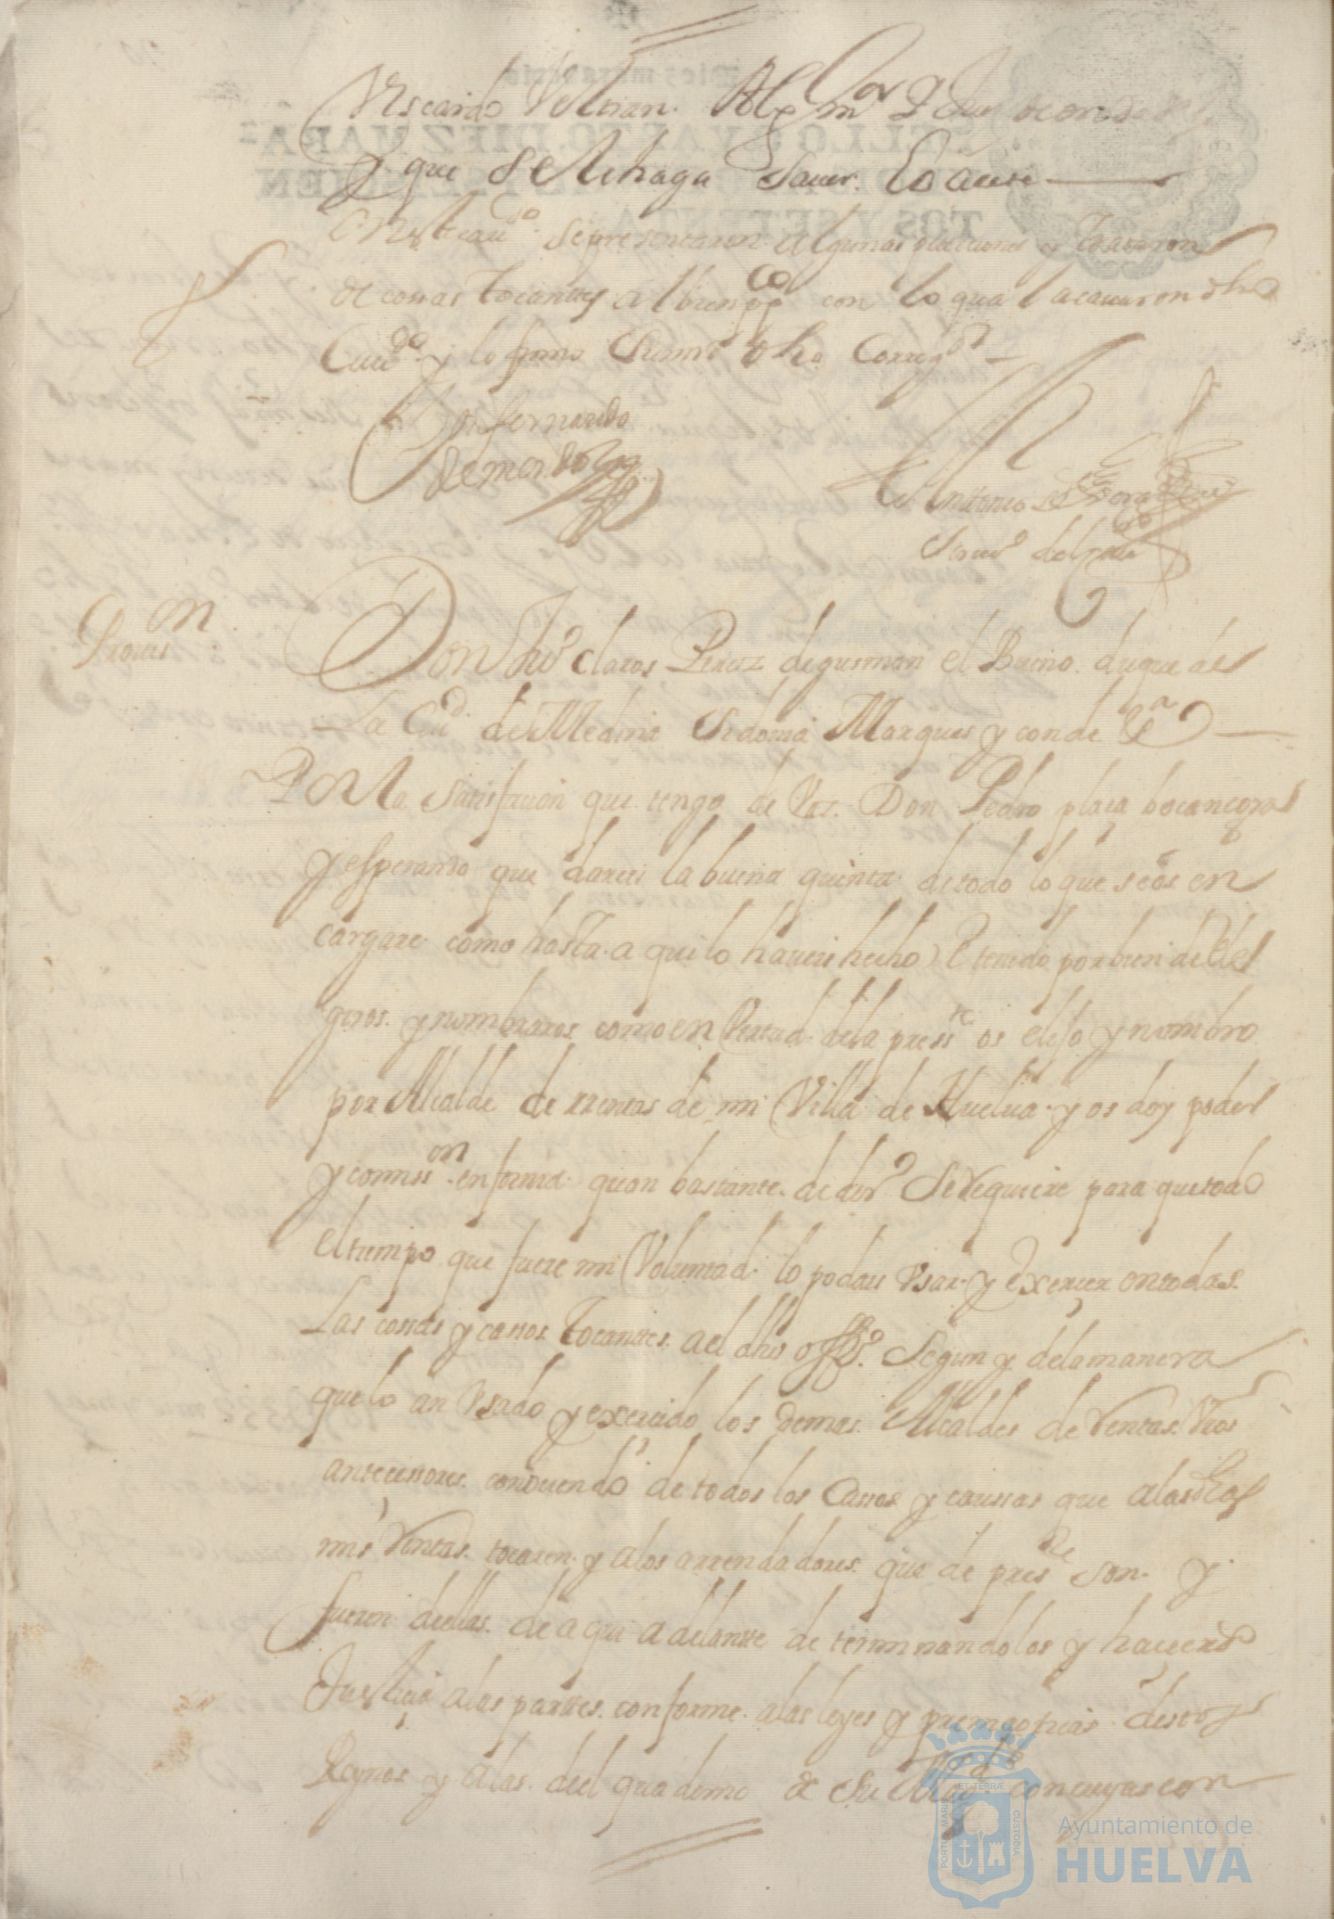 y que se le haga saver lo acete
En este cavdo se presentaron algunas peticiones y trataron
de cossas tocantes al bien pco con lo qual acavaron dho
Cavdo y lo firmo Su md dho Corregor
Don fernando
de mendoza
Antonio de
Scrivo del cavdo
Provisn
Don Juo claros Perez de gusman el Bueno duque de
La Ciud de Medina Sidonia Marques y conde &a
Por la satisfacion que tengo de Vos Don Pedro plaça bocanegra
y esperanso que dareis la buena quenta de todo lo que se os en
cargare como hasta aqui lo haveis hecho E tenido por bien de Ele
giros y nombraros como en Virtud de la preste os elijo y nombro
por Alcalde de rrentas de mi Villa de Huelva y os doy poder
y comisson en forma quan bastante de dro Se requiere para que todo
el tiempo que fuere mi Voluntad lo podais Usar y Exercer en todas
Las cossas y cassos tocantes a el dho offo Segun y de la manera
que lo an Usado y exercido los demas Alcaldes de Rentas Vros
antecessores conociendo de todos los Cassos y caussas que a las dhas
mis Rentas tocaren y a los arrendadores que de preste son y
fueren dellas de aqui adelante determinandolos y haciendo
Justicia a las partes conforme a las leyes y premaoticas destos
Reynos y a las del quaderno de Su Magd con cuyas con
Ayuntamiento de
HUELVA